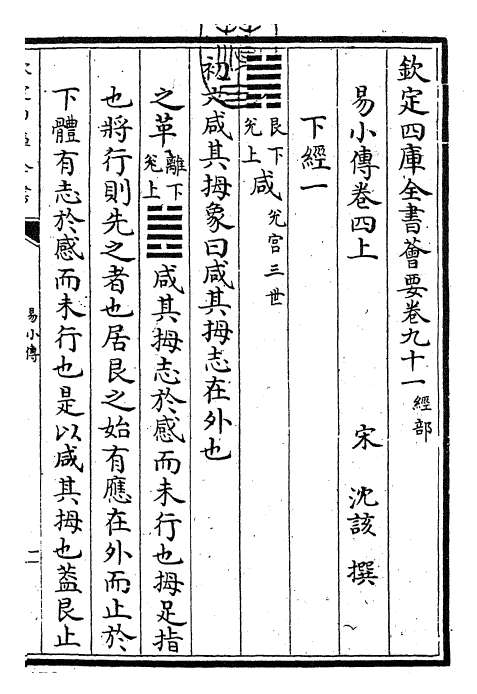 欽定四庫全書薈要卷九十一 經部
易小傳卷四上 宋 沈該 撰
下經一
艮下兌上 咸 兌宮三世
初六咸其拇象曰咸其拇志在外也
之革 離下兌上 咸其拇志於感而未行也拇足指
也將行則先之者也居艮之始有應在外而止於
下體有志於感而未行也是以咸其拇也蓋艮止
易小傳
二